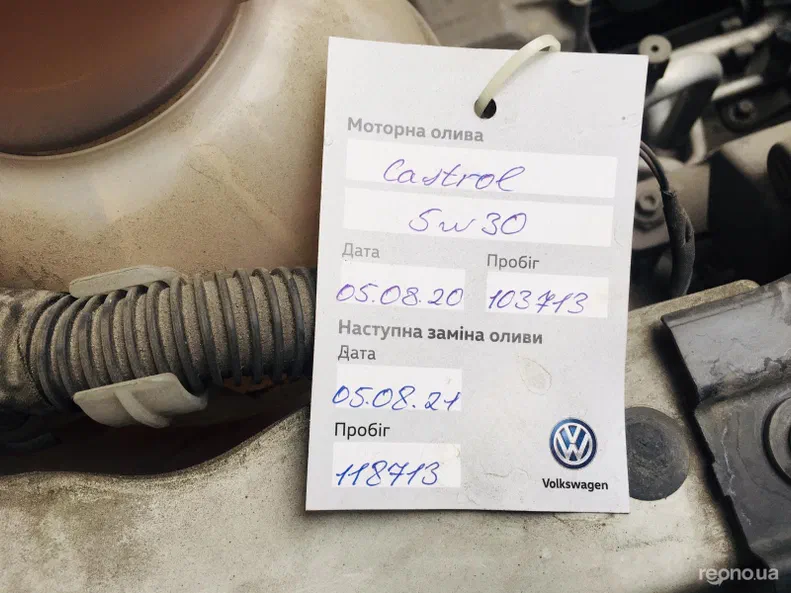 Моторна олива
Castrol
5w30
Дата
Пробіг
05.08.20
103713
Наступна заміна оливи
Дата
05.08.21
Пробіг
118713
Volkswagen
reono.ua